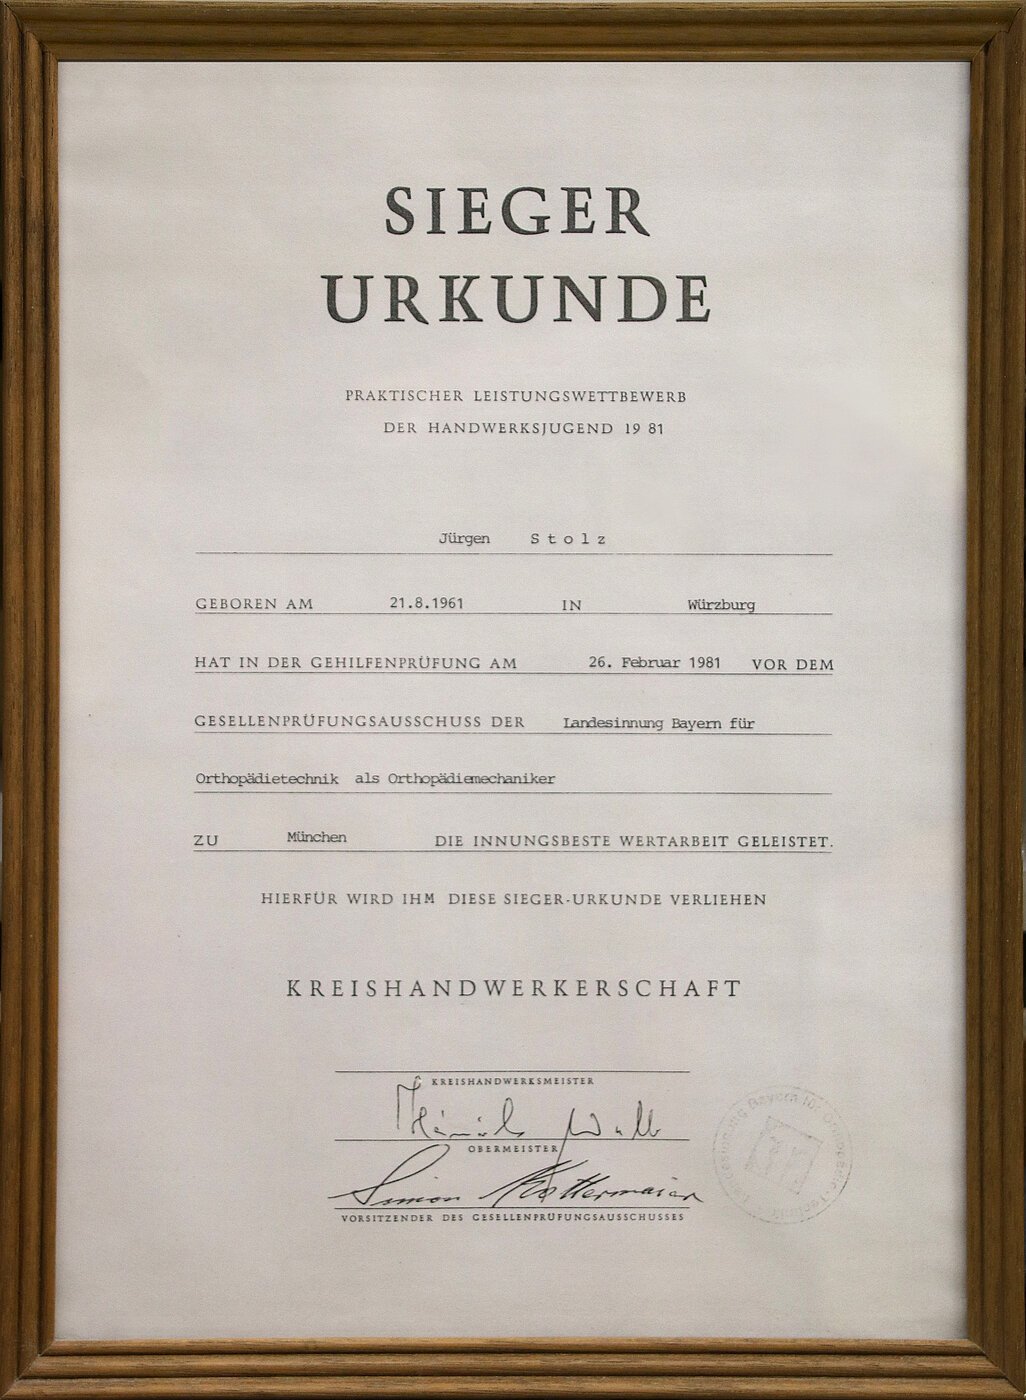 SIEGER
URKUNDE
PRAKTISCHER LEISTUNGSWETTBEWERB
DER HANDWERKSJUGEND 19 81
Jürgen Stolz
GEBOREN AM 21.8.1961 IN Würzburg
HAT IN DER GEHILFENPRÜFUNG AM 26. Februar 1981 VOR DEM
GESELLENPRÜFUNGSAUSSCHUSS DER Landesinnung Bayern für
Orthopädietechnik als Orthopädiemechaniker
ZU München DIE INNUNGSBESTE WERTARBEIT GELEISTET.
HIERFÜR WIRD IHM DIESE SIEGER-URKUNDE VERLIEHEN
KREISHANDWERKERSCHAFT
KREISHANDWERKSMEISTER
OBERMEISTER
Simon
VORSITZENDER DES GESELLENPRÜFUNGSAUSSCHUSSES
Landesinnung Bayern für